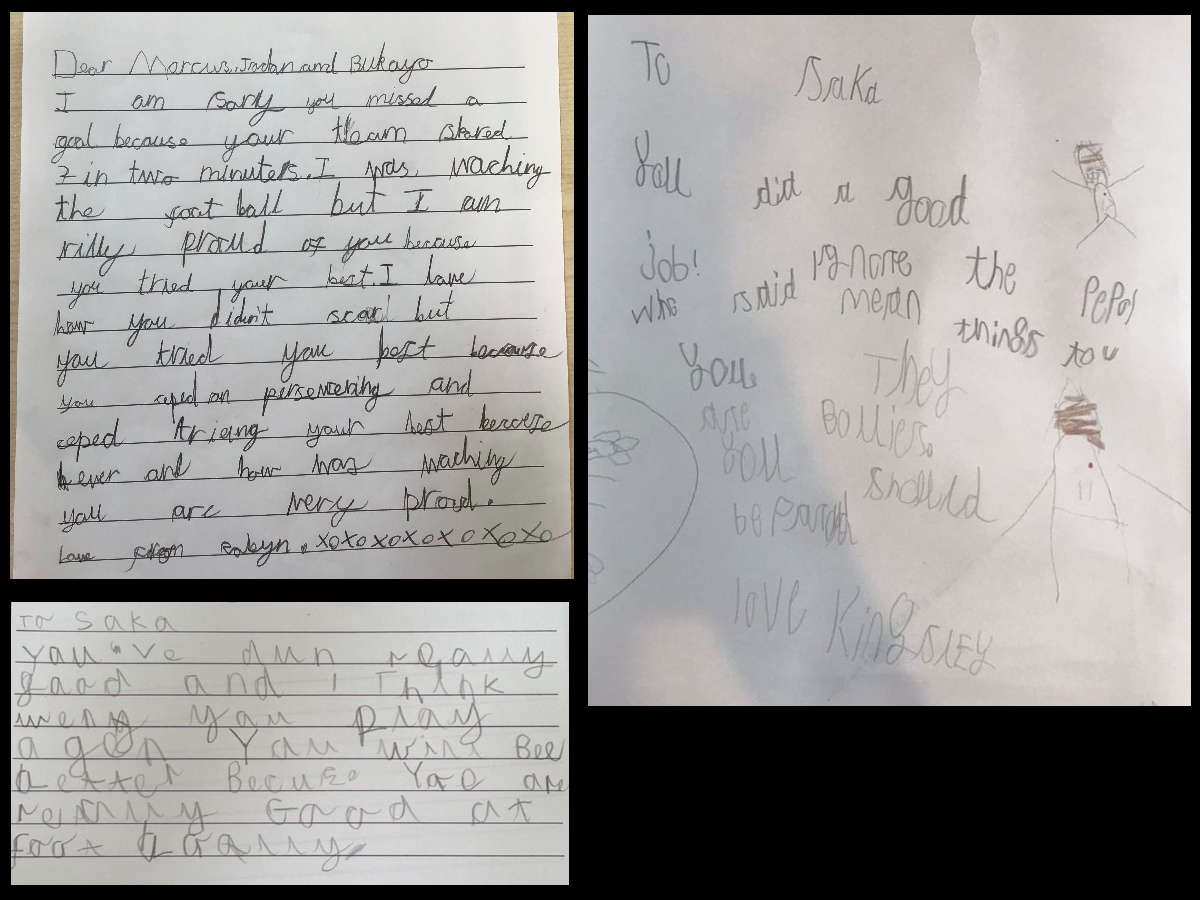 Dear Marcus, Jadan and Bukayo
I am sorry you missed a
goal because your team skored
7 in two minutets. I was waching
the foot ball but I am
rilly proud of you because
you tried your best. I love
how you didn't scor but
you tried you best because
you ceped on persevering and
ceped triang your best becorse
ever and how was waching
you are very proud.
love from Robyn. xoxoxoxoxoxoxo
To Saka
you've dun really
good and I think
wen you play
agen You wint Bee
better Becuse Yoo are
really Good at
foot
To Saka
You did a good
job! ignore the Pepol
who said mean things to u
You They
are Bollies.
You should
be parod
love Kingsley